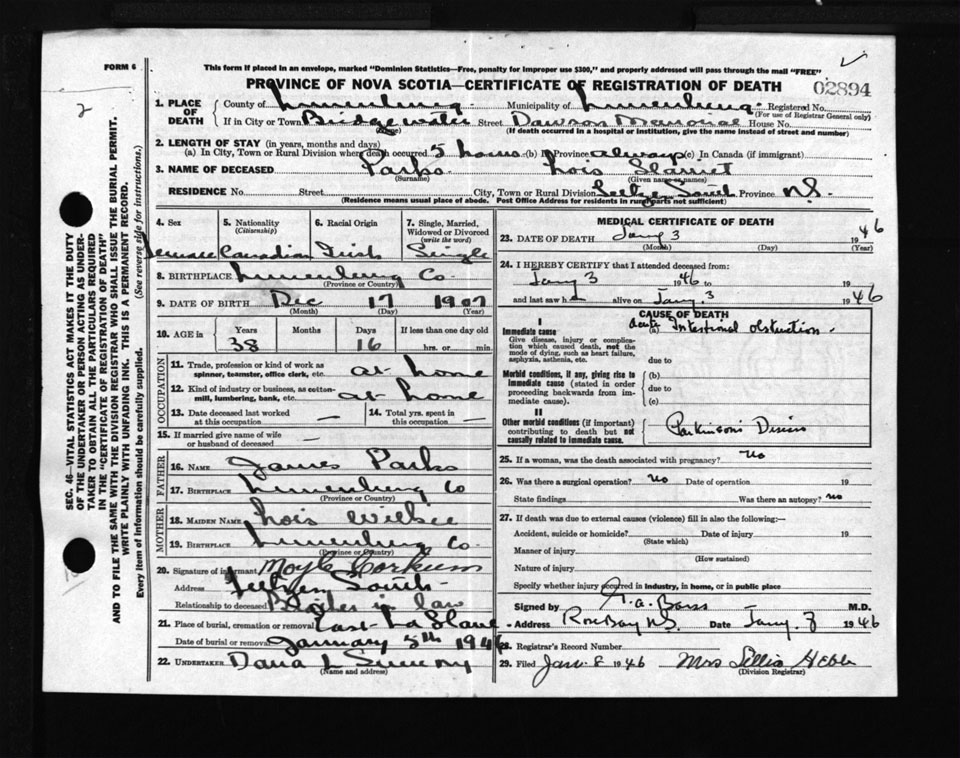 FORM 6
This form if placed in an envelope, marked "Dominion Statistics—Free, penalty for improper use $300," and properly addressed will pass through the mail "FREE"
PROVINCE OF NOVA SCOTIA—CERTIFICATE OF REGISTRATION OF DEATH
02894
2
1. PLACE OF DEATH County of Lunenburg Municipality of Lunenburg Registered No.
(For use of Registrar General only)
If in City or Town Bridgewater Street Dawson Memorial House No.
(Name) (If death occurred in a hospital or institution, give the name instead of street and number)
2. LENGTH OF STAY (in years, months and days)
(a) In City, Town or Rural Division where death occurred 5 hours (b) In Province always (c) In Canada (if immigrant)
3. NAME OF DECEASED Parks Lois
(Surname) (Given name or names)
RESIDENCE No. Street City, Town or Rural Division South Province N.S.
(Residence means usual place of abode. Post Office Address for residents in rural parts not sufficient)
4. Sex Female
5. Nationality (Citizenship) Canadian
6. Racial Origin Irish
7. Single, Married, Widowed or Divorced (write the word) Single
8. BIRTHPLACE Lunenburg Co.
(Province or Country)
9. DATE OF BIRTH Dec 17 1907
(Month) (Day) (Year)
10. AGE in Years 38 Months Days 16 If less than one day old hrs. or min.
OCCUPATION
11. Trade, profession or kind of work as spinner, teamster, office clerk, etc. at home
12. Kind of industry or business, as cotton-mill, lumbering, bank, etc. at home
13. Date deceased last worked at this occupation —
14. Total yrs. spent in this occupation —
15. If married give name of wife or husband of deceased —
FATHER
16. NAME James Parks
17. BIRTHPLACE Lunenburg Co
(Province or Country)
MOTHER
18. MAIDEN NAME Lois
19. BIRTHPLACE Lunenburg Co.
(Province or Country)
20. Signature of informant Moyle Corkum
Address South
Relationship to deceased Brother in law
21. Place of burial, cremation or removal East La Have
Date of burial or removal January 5th 1946
22. UNDERTAKER Dana L
(Name and address)
MEDICAL CERTIFICATE OF DEATH
23. DATE OF DEATH Jany 3 1946
(Month) (Day) (Year)
24. I HEREBY CERTIFY that I attended deceased from:
Jany 3 1946 to 19
and last saw h alive on Jany. 3 1946
CAUSE OF DEATH
I
Immediate cause (a) Acute Intestinal obstruction
Give disease, injury or complication which caused death, not the mode of dying, such as heart failure, asphyxia, asthenia, etc.
due to
Morbid conditions, if any, giving rise to immediate cause (stated in order proceeding backwards from immediate cause).
(b)
due to
(c)
II
Other morbid conditions (if important) contributing to death but not causally related to immediate cause.
Parkinsons
25. If a woman, was the death associated with pregnancy? No
26. Was there a surgical operation? No Date of operation 19
State findings Was there an autopsy? No
27. If death was due to external causes (violence) fill in also the following:—
Accident, suicide or homicide? Date of injury 19
(State which)
Manner of injury
(How sustained)
Nature of injury
Specify whether injury occurred in industry, in home, or in public place
Signed by A. Barss M.D.
Address Rose Bay N.S. Date Jany. 3 1946
28. Registrar's Record Number
29. Filed Jan. 8 1946 Mrs Lillia Hebb
(Division Registrar)
SEC. 46—VITAL STATISTICS ACT MAKES IT THE DUTY
OF THE UNDERTAKER OR PERSON ACTING AS UNDER-
TAKER TO OBTAIN ALL THE PARTICULARS REQUIRED
IN THE "CERTIFICATE OF REGISTRATION OF DEATH"
AND TO FILE THE SAME WITH THE DIVISION REGISTRAR WHO SHALL ISSUE THE BURIAL PERMIT.
WRITE PLAINLY WITH UNFADING INK. THIS IS A PERMANENT RECORD.
Every item of information should be carefully supplied. (See reverse side for instructions.)